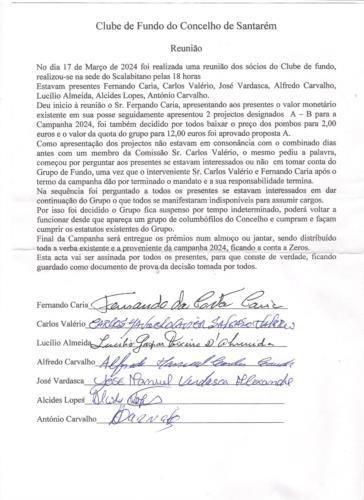 Clube de Fundo do Concelho de Santarém
Reunião
No dia 17 de Março de 2024 foi realizada uma reunião dos sócios do Clube de fundo,
realizou-se na sede do Scalabitano pelas 18 horas
Estavam presentes Fernando Caria, Carlos Valério, José Vardasca, Alfredo Carvalho,
Lucílio Almeida, Alcides Lopes, António Carvalho.
Deu inicio à reunião o Sr. Fernando Caria, apresentando aos presentes o valor monetário
existente em sua posse seguidamente apresentou 2 projectos designados A – B para a
Campanha 2024, foi também decidido por todos baixar o preço dos pombos para 2,00
euros e o valor da quota do grupo para 12,00 euros foi aprovado proposta A.
Como apresentação dos projectos não estavam em consonância com o combinado dias
antes com um membro da Comissão Sr. Carlos Valério, o mesmo pediu a palavra,
começou por perguntar aos presentes se estavam interessados ou não em tomar conta do
Grupo de Fundo, uma vez que o interveniente Sr. Carlos Valério e Fernando Caria após o
termo da campanha dão por terminado o mandato e a sua responsabilidade termina.
Na sequência perguntado a todos os presentes se estavam interessados em dar
continuação do Grupo o que todos se manifestaram indisponíveis para assumir cargos.
Por isso foi decidido o Grupo fica suspenso por tempo indeterminado, poderá voltar a
funcionar desde que apareça um grupo de columbófilos do Concelho e cumpram e façam
cumprir os estatutos existentes do Grupo.
Final da Campanha será entregue os prémios num almoço ou jantar, sendo distribuído
toda a verba existente e a proveniente da campanha 2024, ficando a conta a Zeros.
Esta acta vai ser assinada por todos os presentes, para que conste de verdade, ficando
guardado como documento de prova da decisão tomada por todos.
Fernando Caria Fernando da Costa Caria
Carlos Valério CARLOS Valério
Lucílio Almeida Lucílio Gaspar Pereira D'Almeida
Alfredo Carvalho Alfredo Manuel
José Vardasca José Manuel Vardasca Alexandre
Alcides Lopes Alcides Lopes
António Carvalho